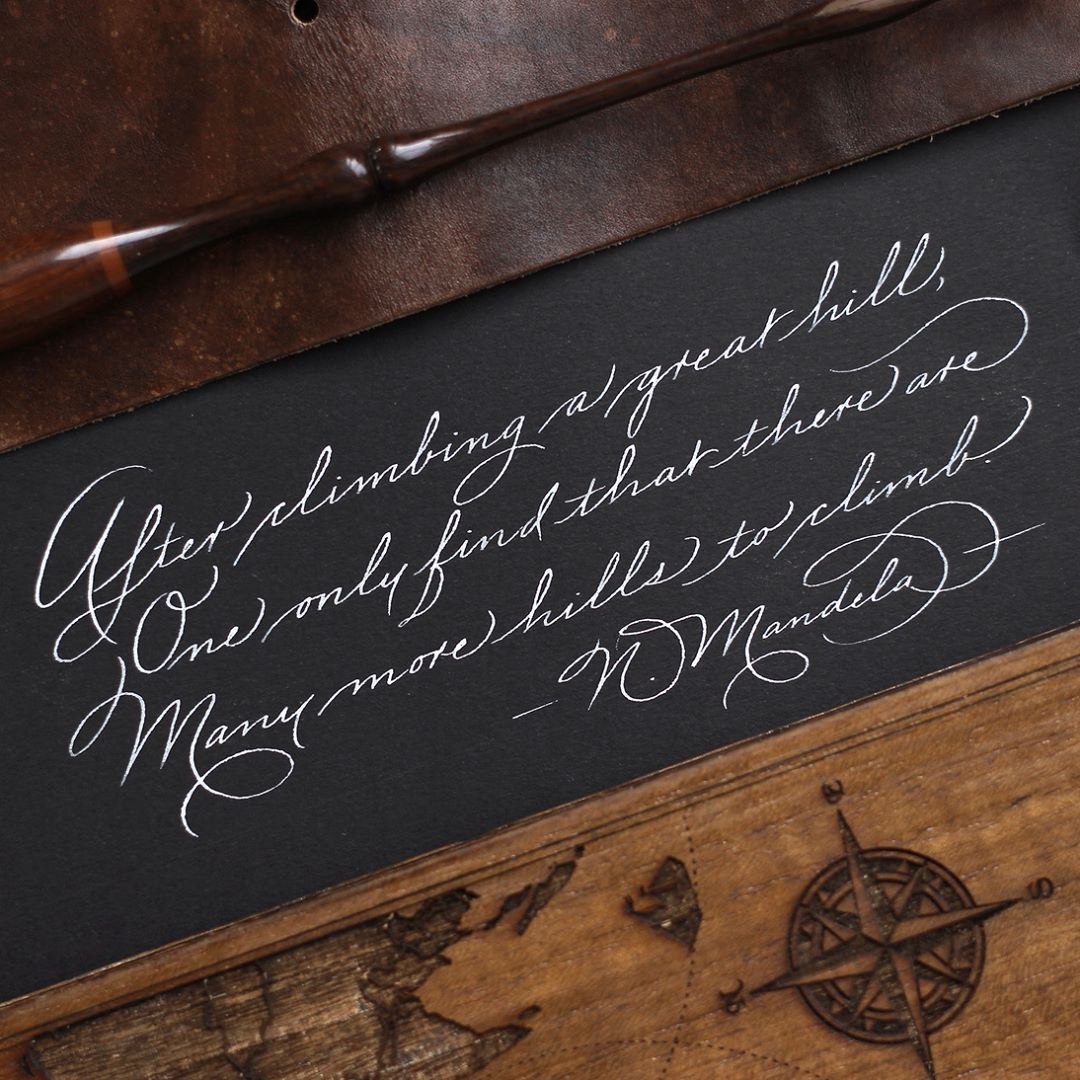 After climbing a great hill,
One only find that there are
Many more hills to climb.
— N. Mandela —